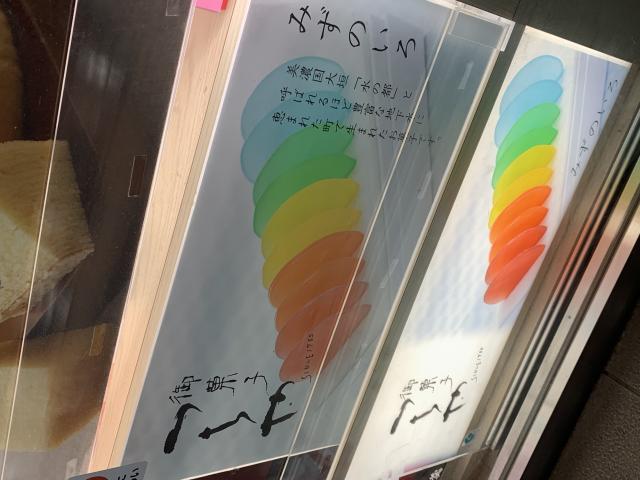 みずのいろ
美濃国大垣「水の都」と
呼ばれるほど豊富な地下水に
恵まれた町で生まれたお菓子です。
SINCE1755
御菓子
つちや
みずのいろ
SINCE1755
御菓子
つちや